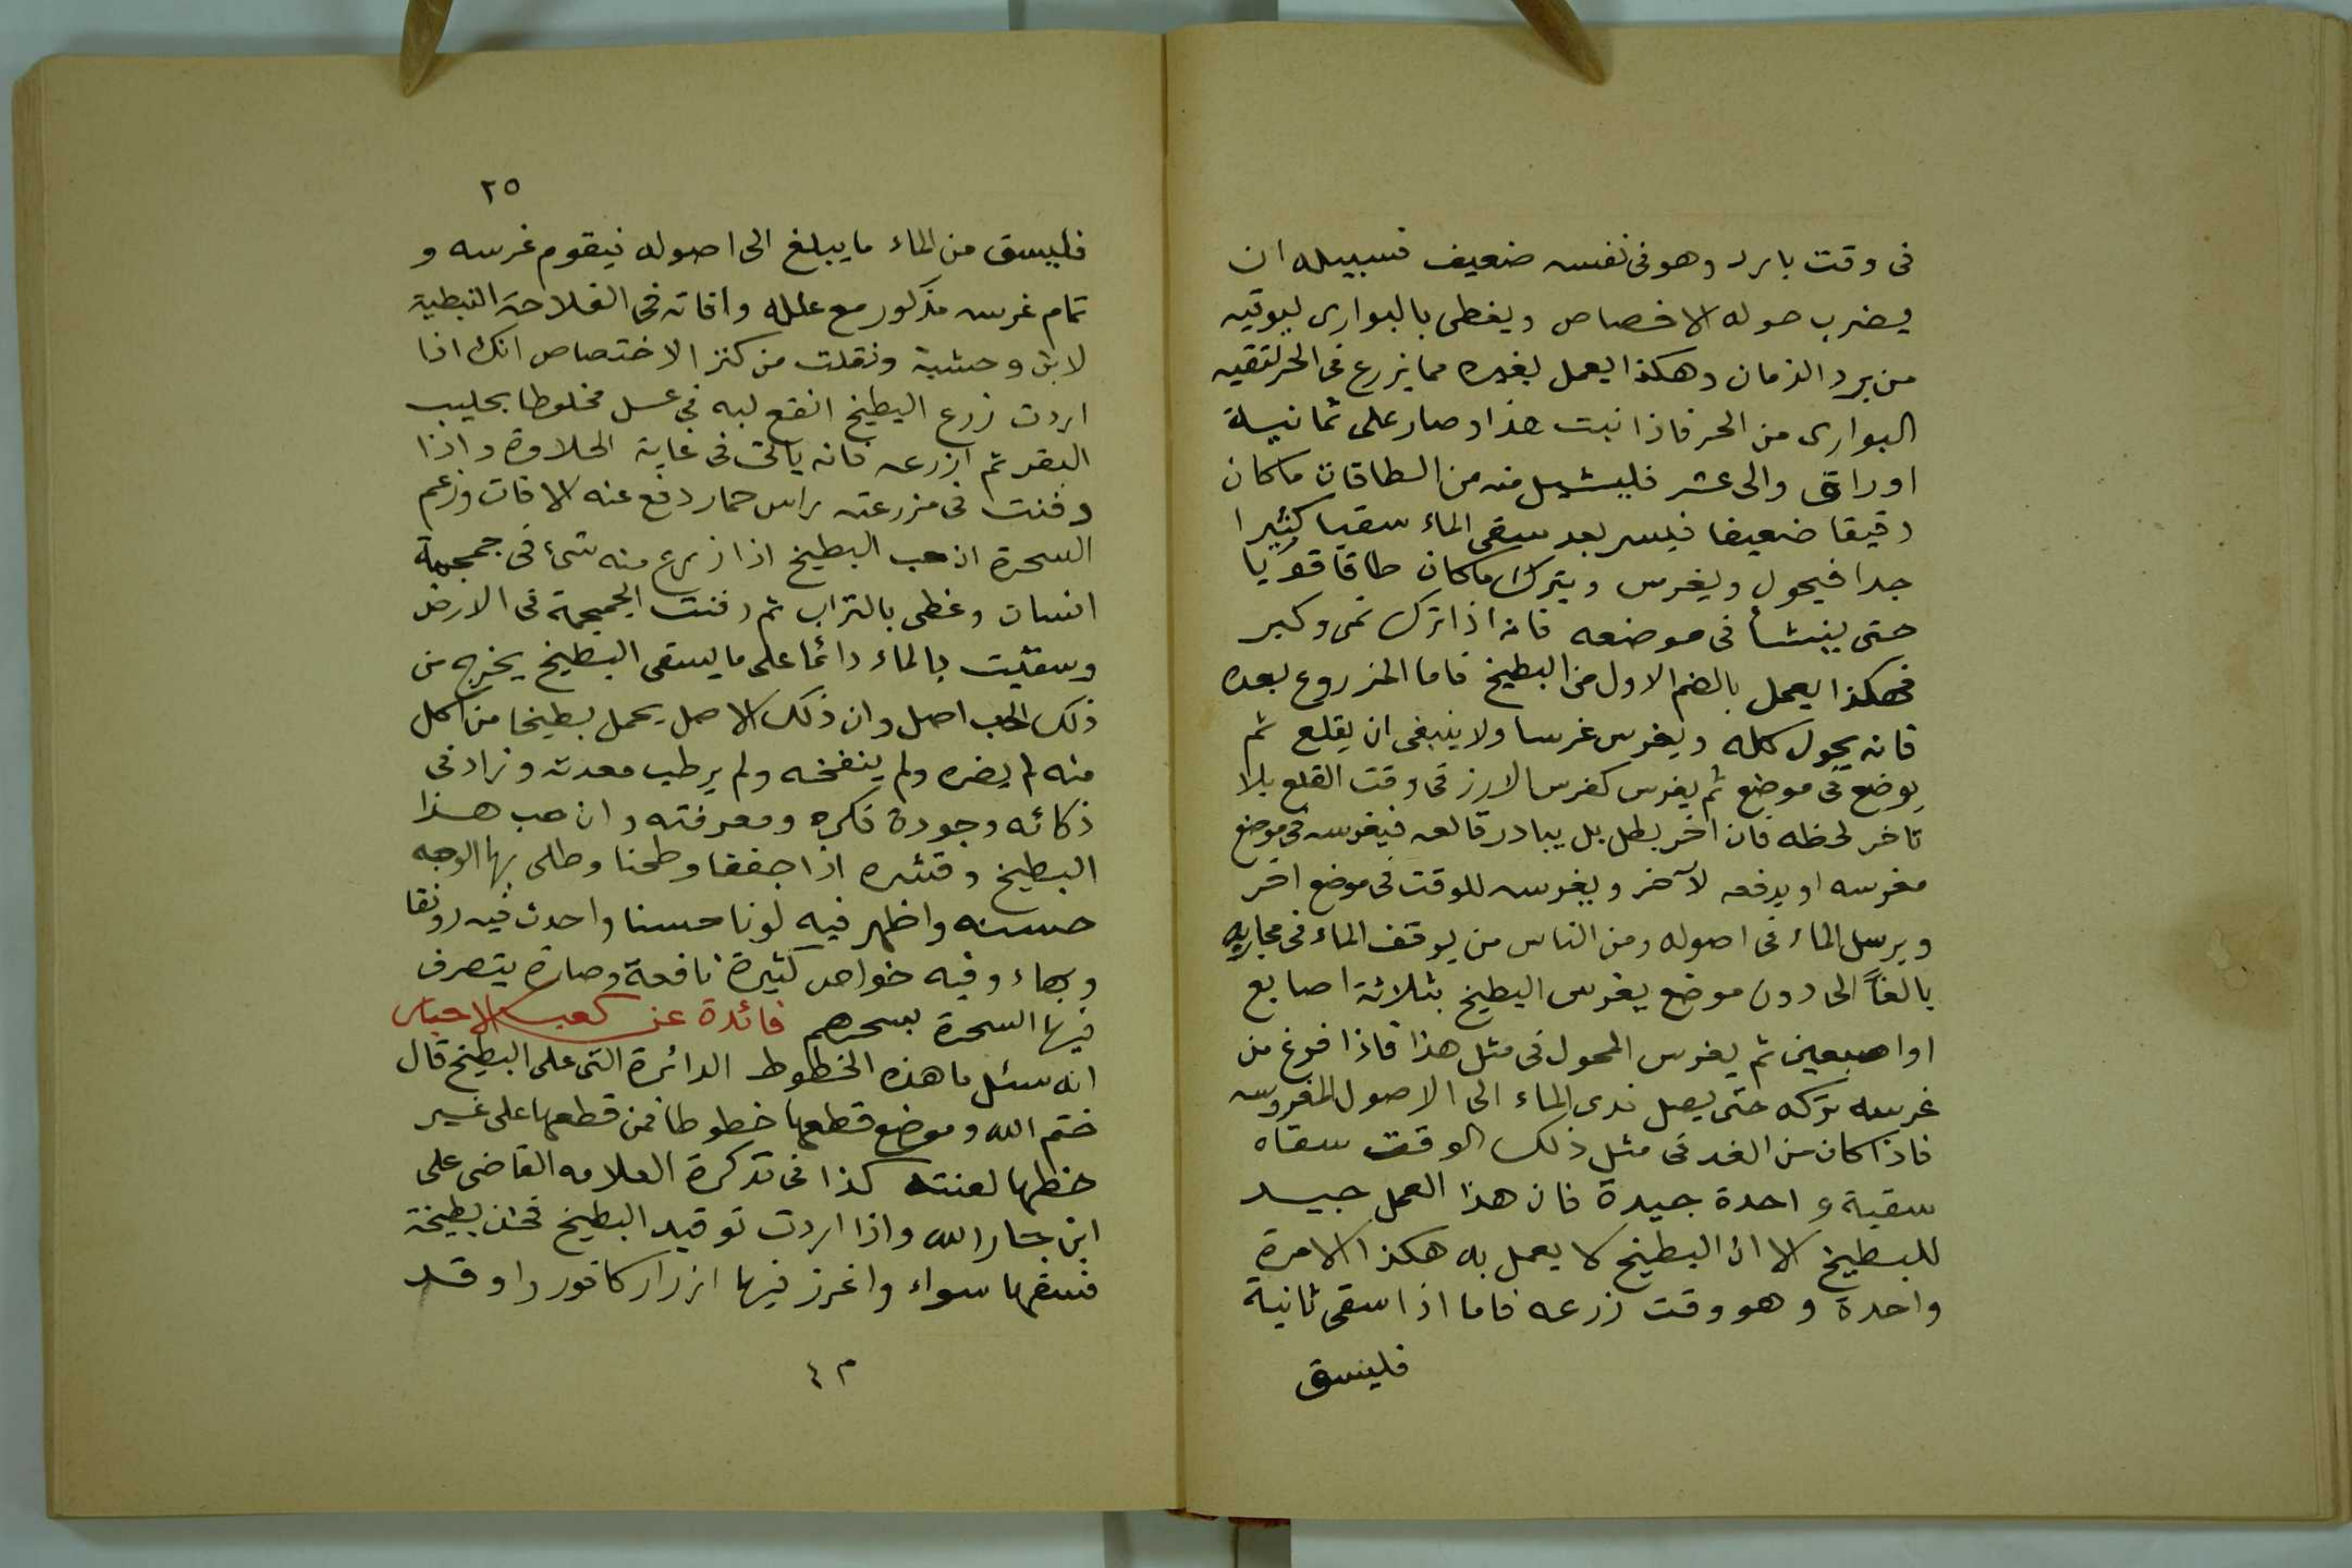 فى وقت بارد وهو فى نفسه ضعيف فسبيله ان
يضرب حوله الاخصاص ويغطى بالبوارى ليوقيه
من برد الزمان وهكذا يعمل بغيره مما يزرع فى الحر لتقيه
البوارى من الحر فاذا نبت هذا وصار على ثمانية
اوراق والى عشر فليشيل منه من الطاقات ما كان
دقيقا ضعيفا فيسر بعد سقى الماء سقيا كثيرا
جدا فيحول ويغرس ويترك ما كان طاقا قويا
حتى ينشأ فى موضعه فانه اذا ترك نمى وكبر
فهكذا يعمل بالضم الاول من البطيخ فاما المزروع بعده
فانه يحول كله ويغرس غرسا ولا ينبغى ان يقلع ثم
يوضع فى موضع ثم يغرس كغرس الارز فى وقت القلع بلا
تاخر لحظه فان اخر بطل بل يبادر قالعه فيغرسه فى موضع
مغرسه او يدفعه لآخر ويغرسه للوقت فى موضع اخر
ويرسل الماء فى اصوله ومن الناس من يوقف الماء فى مجاريه
بالغاً الى دون موضع يغرس البطيخ بثلاثة اصابع
او اصبعين ثم يغرس المحول فى مثل هذا فاذا فرغ من
غرسه تركه حتى يصل ندى الماء الى الاصول المغروسه
فاذا كان من الغد فى مثل ذلك الوقت سقاه
سقية واحدة جيدة فان هذا العمل جيد
للبطيخ الا ان البطيخ لا يعمل به هكذا الا مرة
واحدة وهو وقت زرعه فاما اذا سقى ثانية
فلينسق
٢٥
فليسق من الماء ما يبلغ الى اصوله فيقوم غرسه و
تمام غرسه مذكور مع علله وافاته فى الفلاحة النبطية
لابن وحشية ونقلت من كنز الاختصاص انك اذا
اردت زرع البطيخ انقع لبه فى عسل مخلوطا بحليب
البقر ثم ازرعه فانه ياتى فى غاية الحلاوة واذا
دفنت فى مزرعته راس حمار دفع عنه الافات وزعم
السحرة ان حب البطيخ اذا زرع منه شئ فى جمجمة
انسان وغطى بالتراب ثم دفنت الجمجمة فى الارض
وسقيت بالماء دائما على ما يسقى البطيخ يخرج من
ذلك الحب اصل وان ذلك الاصل يحمل بطيخا من اكل
منه لم يضره ولم ينفخه ولم يرطب معدته وزاد فى
ذكائه وجودة فكره ومعرفته وان حب هذا
البطيخ وقشره اذا جففا وطحنا وطلى بها الوجه
حسنه واظهر فيه لونا حسنا واحدث فيه رونقا
وبهاء وفيه خواص كثيرة نافعة وصارة يتصرف
فيها السحرة بسحرهم فائدة عن كعب الاحبار
انه سئل ما هذه الخطوط الدائرة التى على البطيخ قال
ختم الله وموضع قطعها خطوطا فمن قطعها على غير
خطها لعنته كذا فى تذكرة العلامه القاضى على
ابن جار الله واذا اردت توقيد البطيخ فخذ بطيخة
فشقها سواء واغرز فيها ازرار كافور واوقد
م ٤